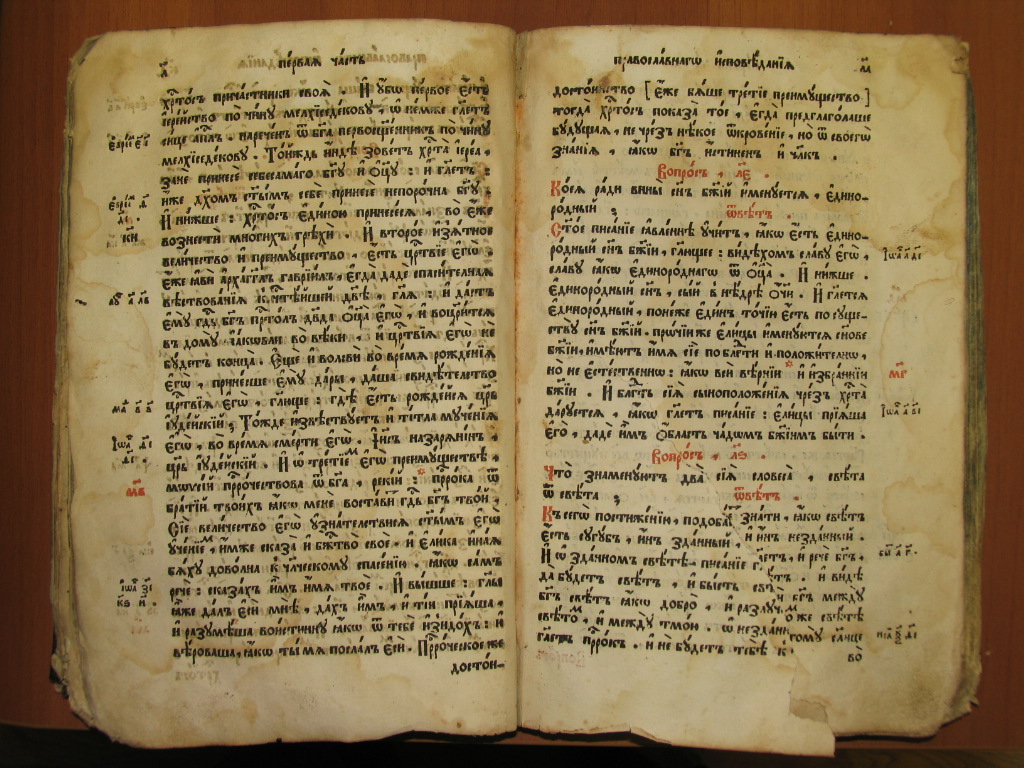 л҃ первая часть
хрⷭ҇тосъ причастники своя . И убѡ первое єсть
іерейство по чину мелхіседекову , ѡ немже гл҃етъ
сице апⷭ҇лъ . нареченъ ѿ бг҃а первосщ҃енникъ по чину
мелхіседекову . Тойждь индѣ зоветъ хрⷭ҇та іереа ,
зане принесѐ себе самаго бг҃у и оц҃у : и гл҃етъ :
иже дх҃омъ ст҃ымъ себѐ принесѐ непорочна бг҃у .
И нижше : хрⷭ҇тосъ єдиною принесеся , во єже
вознести многихъ грѣхи . И второе изѧтное
величество и преимущество , єсть црⷭ҇твіе єгѡ .
Єже ꙗви архаггл҃ъ гавріилъ , єгда даде спасителная
вѣствованія к чтⷭ҇ѣйшей дв҃ѣ , гл҃я : и дастъ
єму гдⷭ҇ь бг҃ъ прⷭ҇толъ дв҃да оц҃а єгѡ , и воцр҃ится
въ дому іакѡвли во вѣки , и црⷭ҇твія єгѡ не
будетъ конца . Єще и волсви во время рожденія
єгѡ , принесше єму дары , даша свидѣтелство
црⷭ҇твія єгѡ , гл҃юще : гдѣ єсть рождейся цр҃ь
іудейскій ; Тожде извѣствуетъ и титла мученія
єгѡ , во время смерти єгѡ . Іис҃ъ назарянинъ ,
цр҃ь іудейскій . И ѡ третіемъ єгѡ преимуществѣ ,
мѡѷсей прⷪ҇рочествова ѿ бг҃а , рекій : прⷪ҇рока ѿ
братій твоихъ ꙗкѡ мене воставитъ гдⷭ҇ь бг҃ъ твой ,
Сіе величество єгѡ узнателствися ст҃ымъ єгѡ
ученіемъ , имже сказа и бжⷭ҇тво свое . и єлика иная
бяху доволна к чл҃ческому спасенію . ꙗкѡ самъ
рече : сказахъ имъ имя твое . И вышше : гл҃ы
ꙗже далъ єси мнѣ , дахъ имъ , и тіи пріяша ,
и разумѣша воистинну ꙗкѡ ѿ тебѐ изыдохъ : и
вѣроваша , ꙗкѡ ты мя послалъ єси . Прⷪ҇роческое же
достои-
євре́ єⷤ а҃
євре́ ѳ҃
к҃и
лу́ а҃ л҃в
маⷴ в҃ в҃
іѡⷩ
м҃в
іѡⷩ з҃і
к҃в и҃ .
православнагѡ исповѣданія л҃а
достоинство [ єже бяше третіе преимущество ]
тогда хрⷭ҇тосъ показа тое , єгда предлаголаше
будущая , не чрезъ нѣкое ѿкровеніе , но ѿ своегѡ
знанія , ꙗкѡ бг҃ъ истиненъ и чл҃къ .
Вопросъ , л҃є .
Коея ради вины сн҃ъ бж҃ій именуется , єдино-
родный ; ѿвѣтъ .
Ст҃ое писаніе ꙗвленнѣ учитъ , ꙗкѡ єсть єдино-
родный сн҃ъ бж҃ій , гл҃ющее : видѣхомъ славу єгѡ ,
славу ꙗкѡ єдинороднагѡ ѿ оц҃а . И нижше .
єдинородный сн҃ъ , сый в нѣдрѣ оч҃и . И гл҃ется
єдинородный , понеже єдинъ точію єсть по суще-
ству сн҃ъ бж҃ій . прочіи же єлицы именуются сынове
бж҃іи , имѣютъ имя сіе по блгⷣти и положителнѡ ,
но не єстественнѡ : ꙗкѡ вси вѣрніи и избранніи
бж҃іи . И блгⷣть сія сыноположенія чрезъ хрⷭ҇та
даруется , ꙗкѡ гл҃етъ писаніе : єлицы пріяша
єго , даде имъ область чадѡмъ бж҃іимъ быти .
Вопросъ , л҃ѕ .
Что знаменуютъ два сія словеса , свѣта
ѿ свѣта ; ѿвѣтъ .
Къ сегѡ постиженію , подобаетъ знати , ꙗкѡ свѣтъ
єсть сугубъ , инъ зданный , и инъ незданный .
И ѡ зданномъ свѣтѣ писаніе гл҃етъ , и рече бг҃ъ ,
да будетъ свѣтъ , и бысть свѣтъ . и видѣ
бг҃ъ свѣтъ ꙗкѡ добро , и разлучи бг҃ъ между
свѣтомъ , и между тмою . ѡ незданномъ же свѣтѣ
гл҃етъ прⷪ҇рокъ . и не будетъ тебѣ к тому слнце
во
іѡⷩ а҃ д҃і
м҃г
іѡⷩ а҃ в҃і